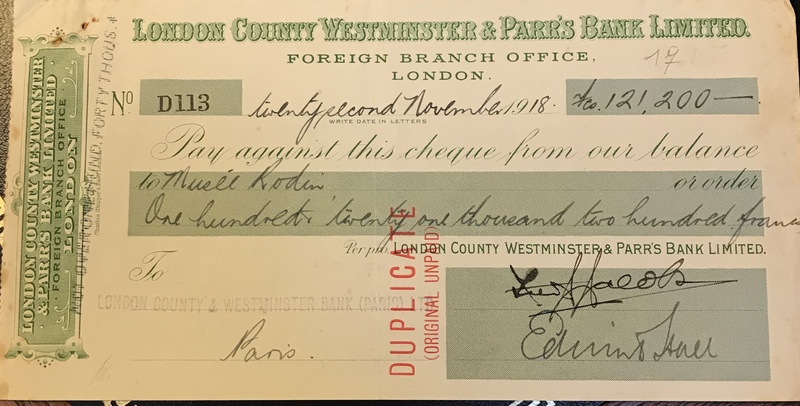 LONDON COUNTY WESTMINSTER & PARR'S BANK LIMITED.
FOREIGN BRANCH OFFICE,
LONDON.
19
No D113 twenty second November 1918. fcs. 121,200—
WRITE DATE IN LETTERS
Pay against this cheque from our balance
to Museé Rodin or order
One hundred & twenty one thousand two hundred francs
Per pro. LONDON COUNTY WESTMINSTER & PARR'S BANK LIMITED.
To
LONDON COUNTY & WESTMINSTER BANK (PARIS) LTD
Paris.
DUPLICATE
(ORIGINAL UNPAID)
Jacobs
Edwin
LONDON COUNTY WESTMINSTER
& PARR'S BANK LIMITED
FOREIGN BRANCH OFFICE
LONDON